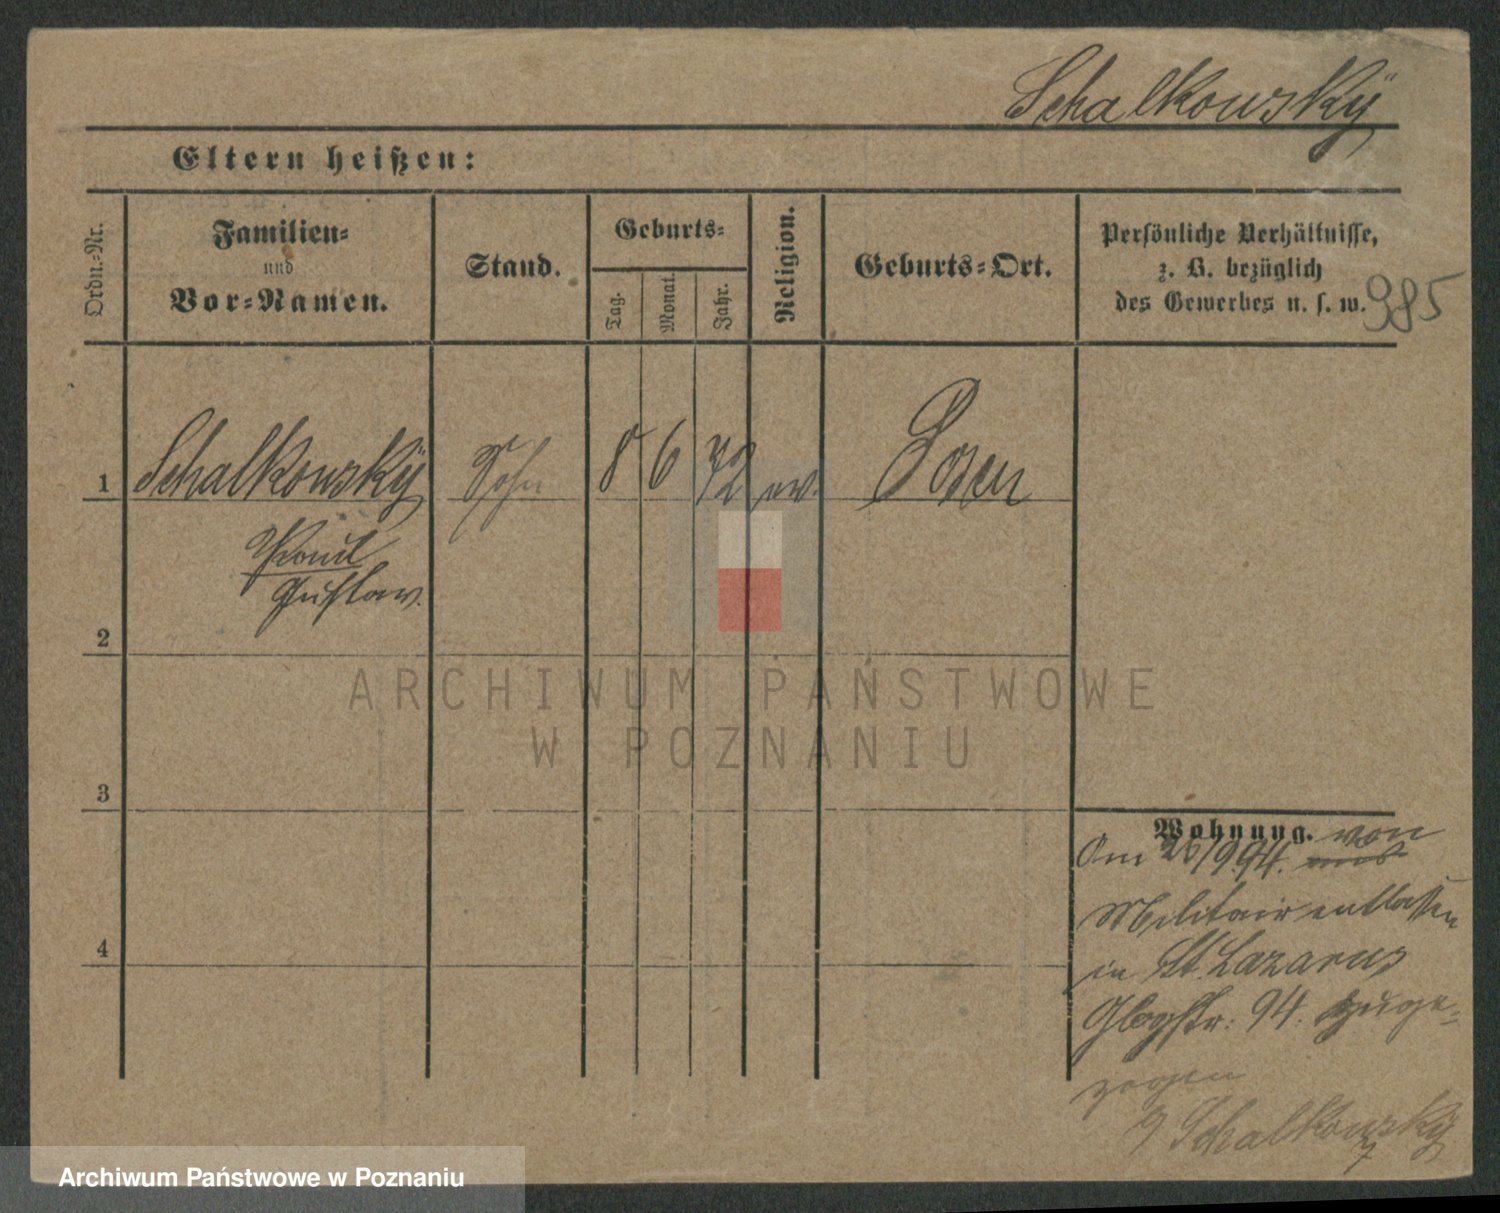 Schalkowskÿ
Eltern heißen:
Ordn.-Nr.
Familien-
und
Vor-Namen.
Stand.
Geburts-
Tag.
Monat.
Jahr.
Religion.
Geburts-Ort.
Persönliche Verhältnisse,
z. B. bezüglich
des Gewerbes u. s. w.
985
1 Schalkowskÿ Sohn 8 6 72 ev. Posen
Paul
Gustav.
2
3
4
ARCHIWUM PAŃSTWOWE
W POZNANIU
Wohnung. von
Am 26/9.94.
Militair entlassen
in St. Lazarus
Glogstr: 94. zuge-
zogen
Schalkowskÿ
Archiwum Państwowe w Poznaniu